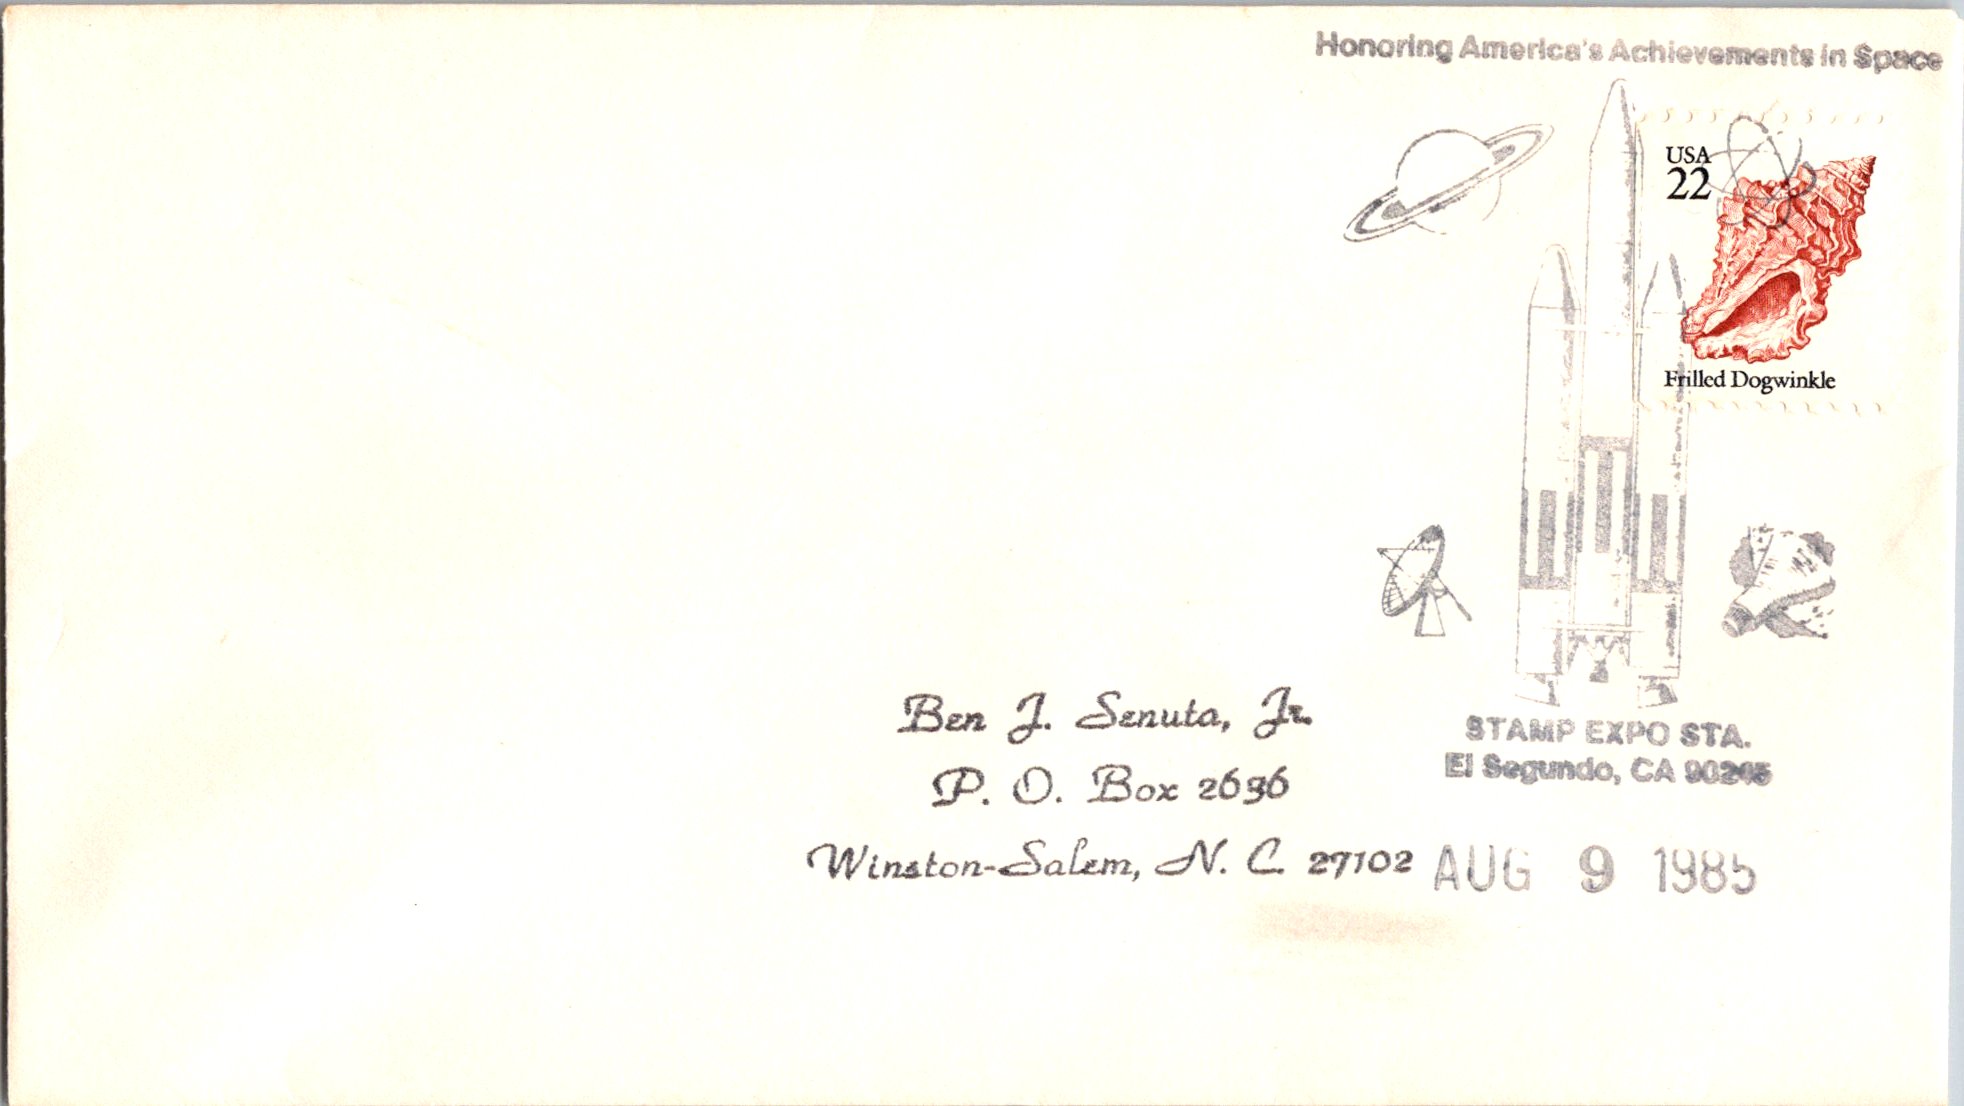 Honoring America's Achievements in Space
USA
22
Frilled Dogwinkle
Ben J. Senuta, Jr.
P. O. Box 2696
Winston-Salem, N. C. 27102
STAMP EXPO STA.
El Segundo, CA
AUG 9 1985